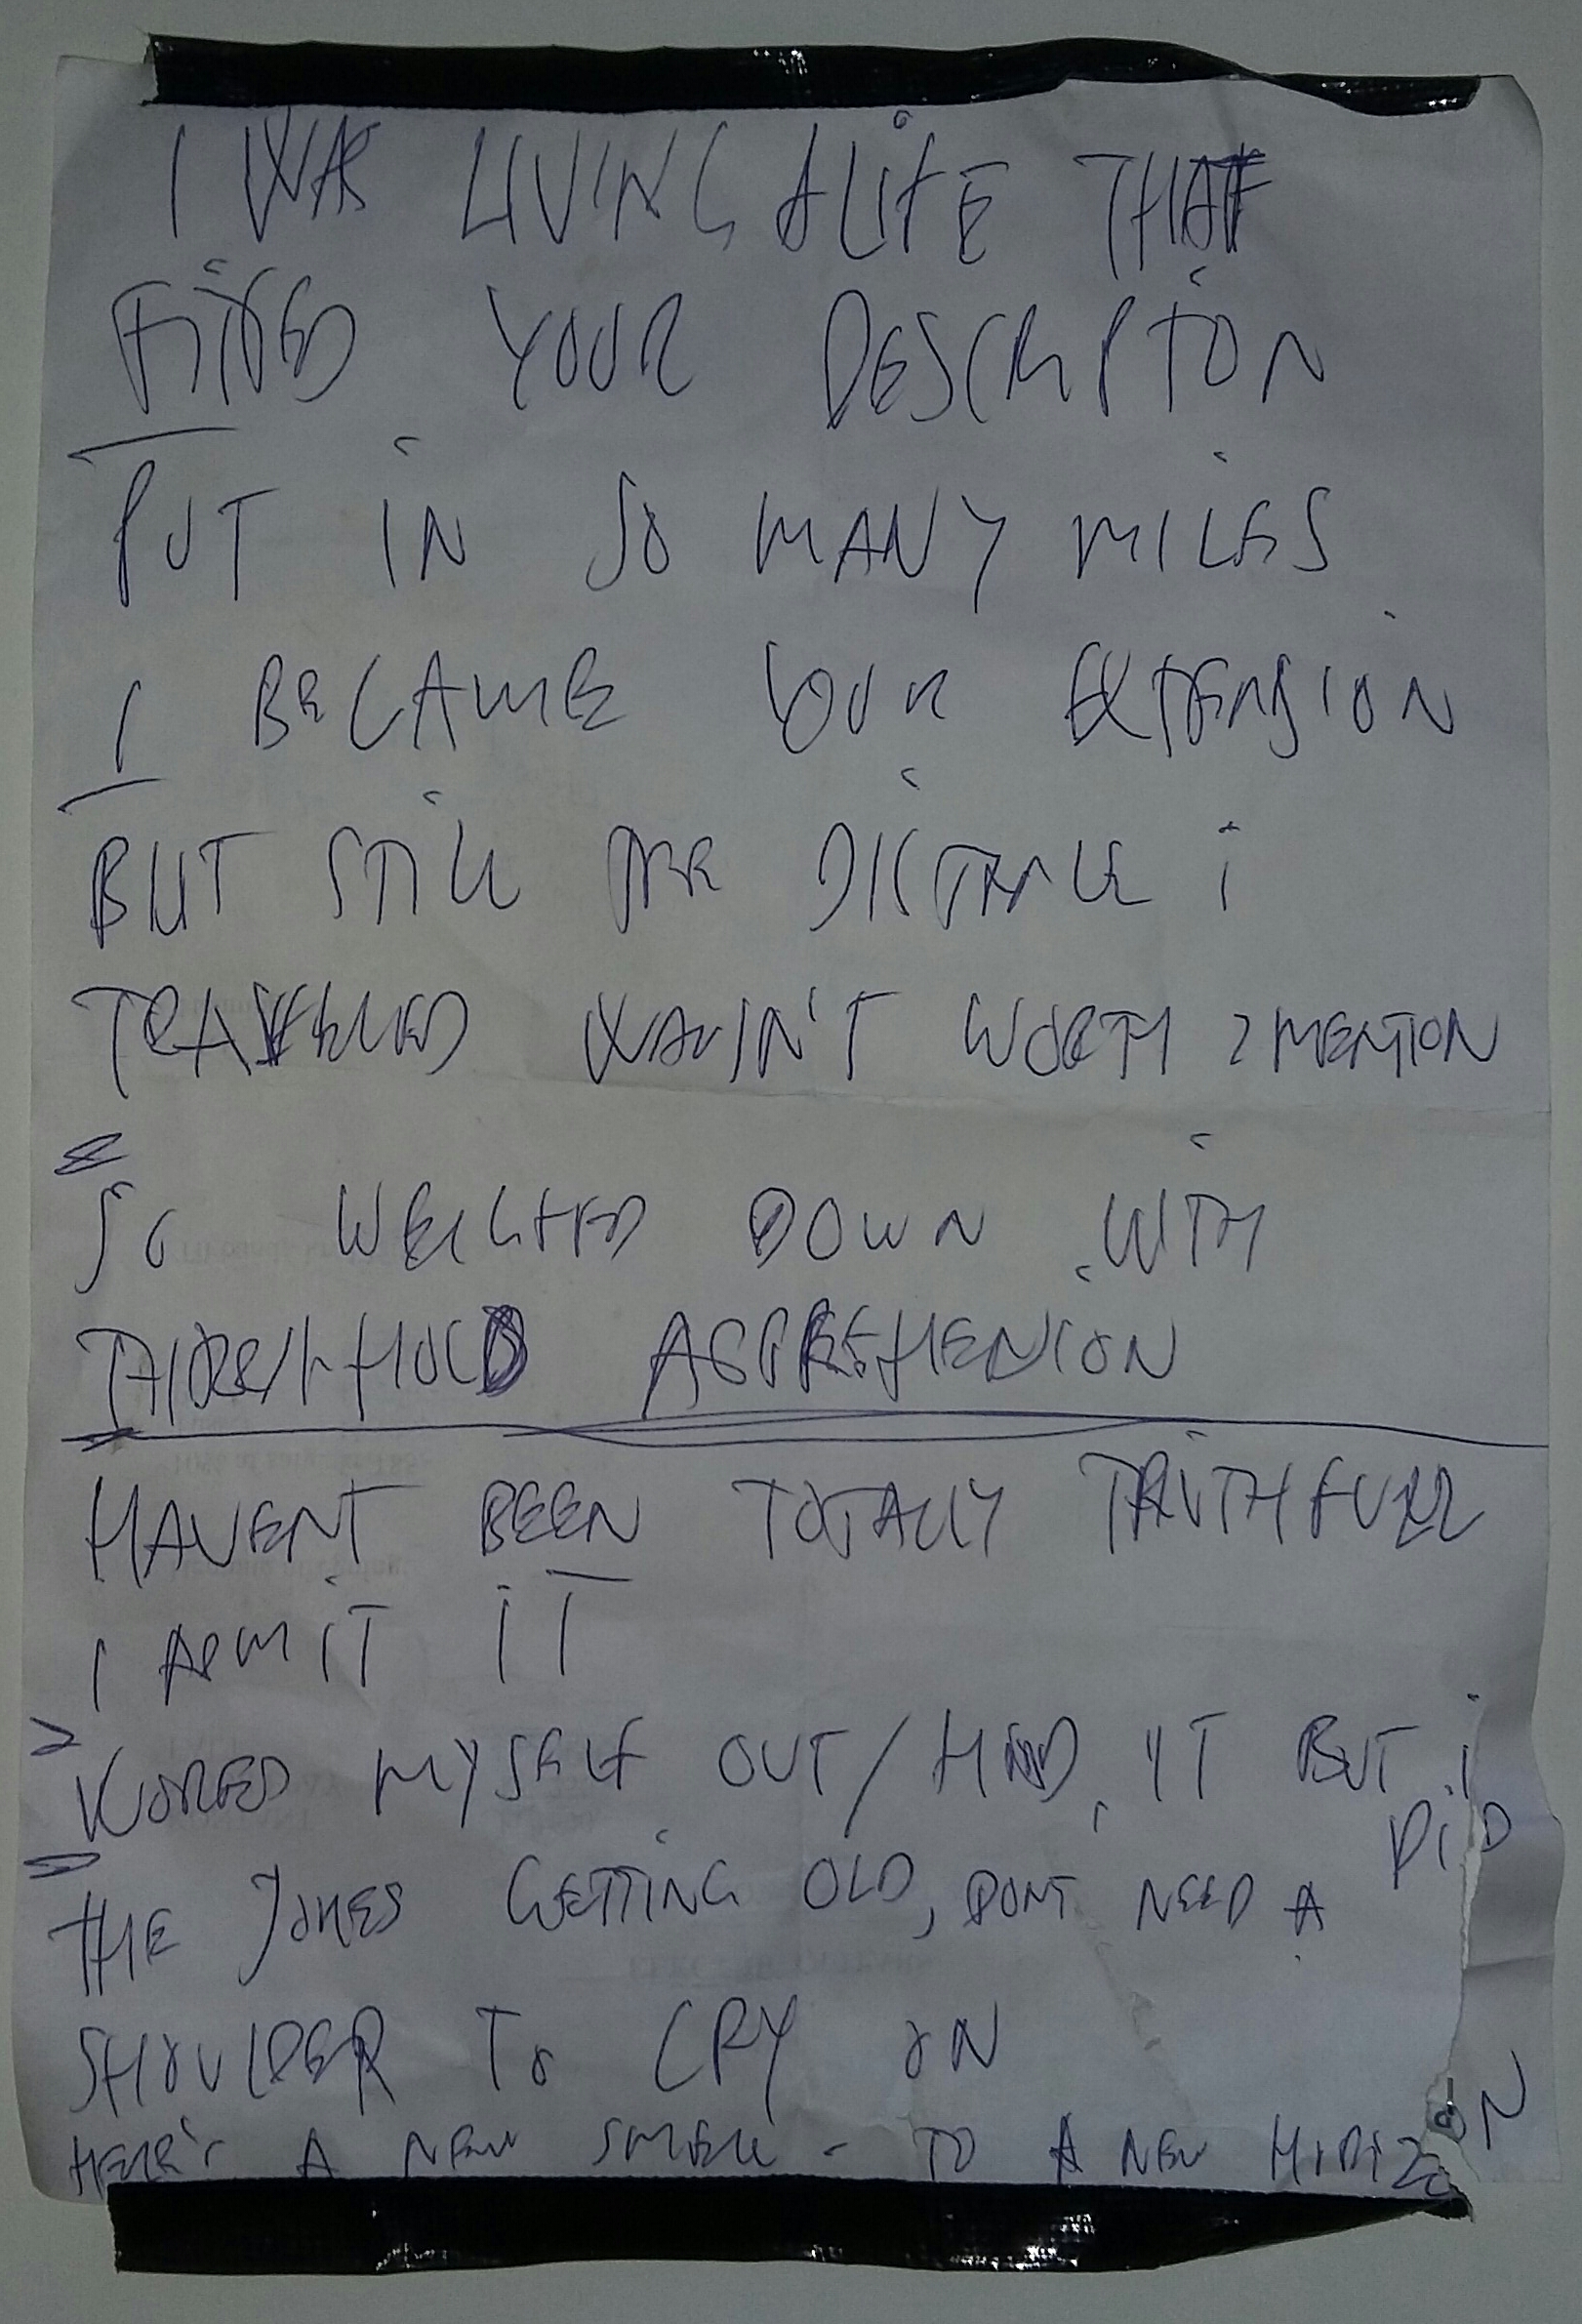 I WAS LIVING A LIFE THAT
FITTED YOUR DESCRIPTION
PUT IN SO MANY MILES
I BECAME YOUR EXTENSION
BUT STILL THE DISTANCE i
TRAVELLED WASN'T WORTH 2 MENTION
SO WEIGHTED DOWN WITH
THRESHHOLD APPREHENSION
HAVENT BEEN TOTALLY TRUTHFULL
I ADMIT IT
WORKED MYSELF OUT/ HAD IT BUT i
DID
THE JOKES GETTING OLD, DONT NEED A
SHOULDER TO CRY ON
HERE'S A NEW SMELL - TO A NEW HORIZON